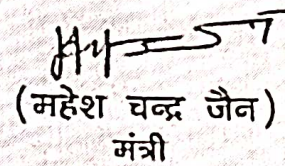 (महेश चन्द्र जैन)
मंत्री